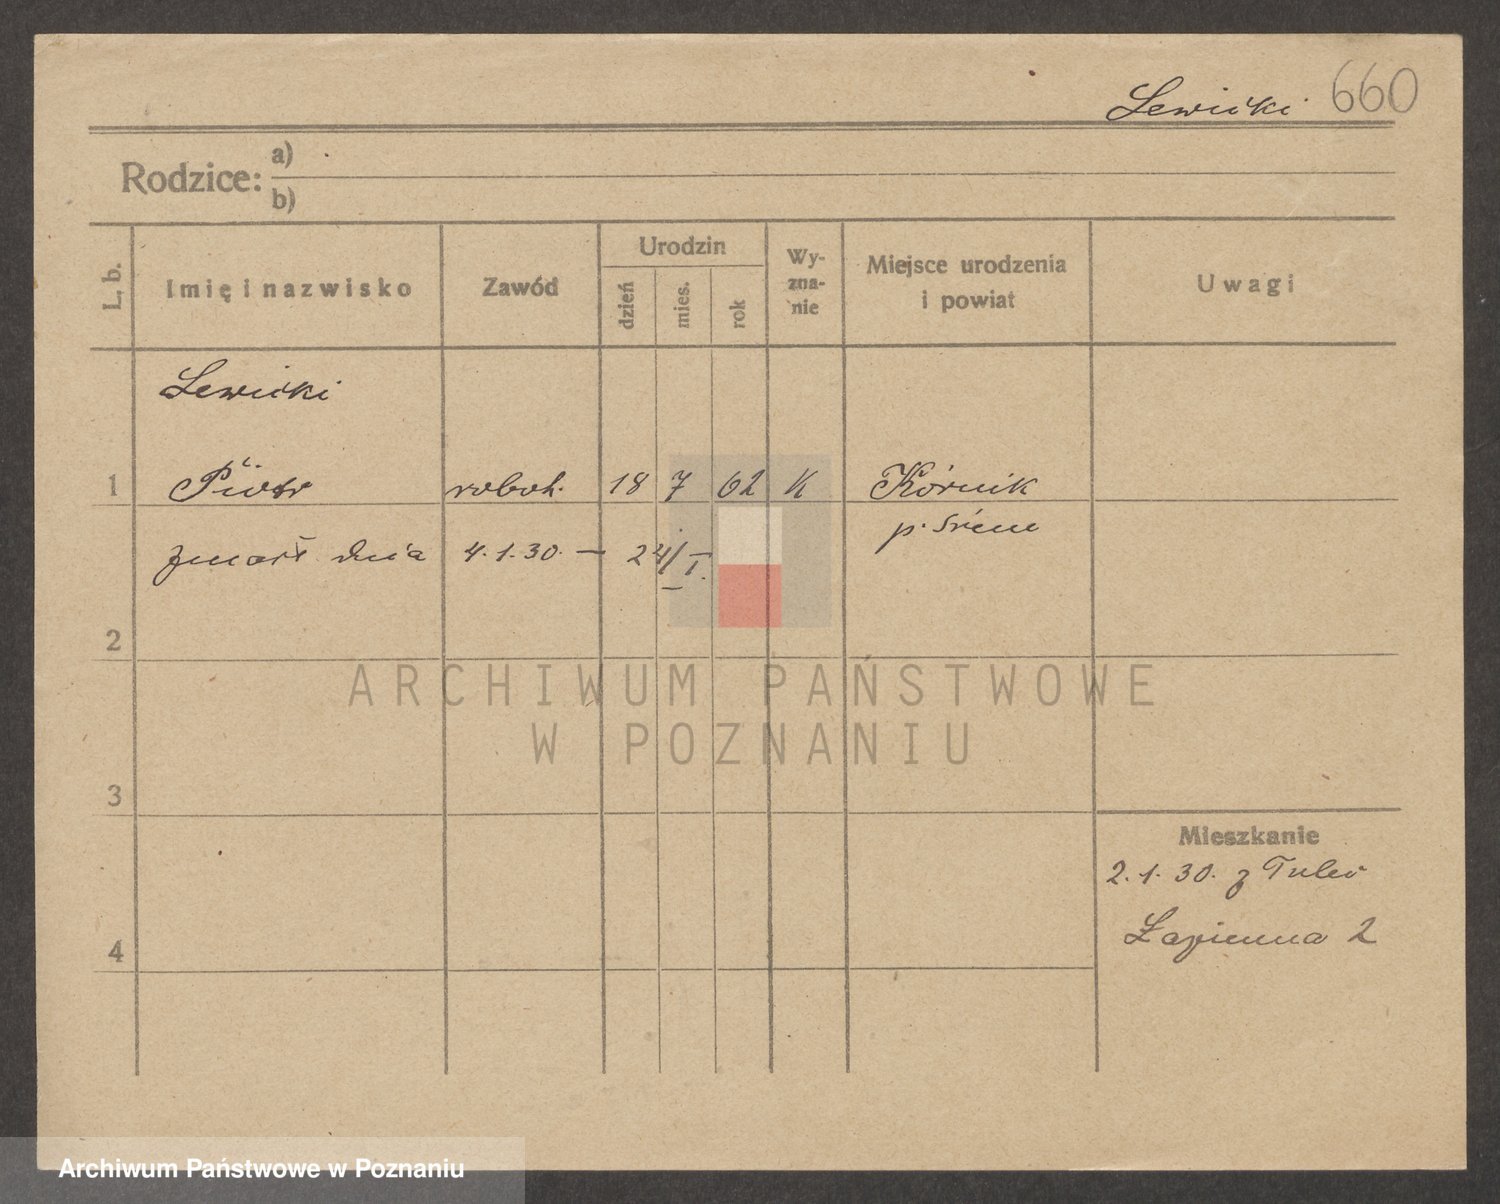 Lewicki 660
Rodzice: a)
b)
L. b. Imię i nazwisko Zawód Urodzin dzień mies. rok Wy-zna-nie Miejsce urodzenia i powiat Uwagi
Lewicki
1 Piotr roboh. 18 7 62 K Kórnik
p. Śrem
zmarł dnia 4.1.30. — 24/I.
2
ARCHIWUM PAŃSTWOWE
W POZNANIU
3
Mieszkanie
2.1.30. z Tulec
4 Łazienna 2
Archiwum Państwowe w Poznaniu